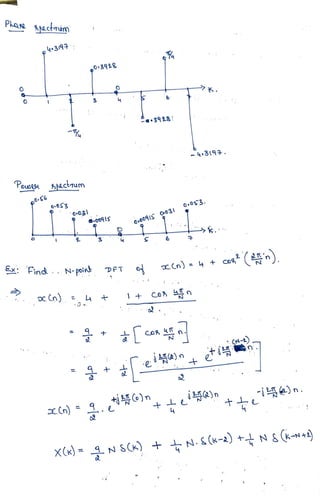 Phase spectrum
4.3197
π/4
0.3928
0 0
0 1 2 3 4 5 6 7 K.
-π/4
-0.3928
-4.3197.
Power spectrum
0.56
0.053 0.053.
0.031 0.031
0.00915 0 0.00915
0 1 2 3 4 5 6 7 K.
Ex: Find N-point DFT of x(n) = 4 + cos² (2π/N n).
⇒ x(n) = 4 + (1 + cos 4π/N n)/2
= 9/2 + 1/2 [cos 4π/N n]
= 9/2 + 1/2 [(e^{j 2π/N (2)n} + e^{+j 2π/N (N-2)n})/2]
x(n) = 9/2 . e^{+j 2π/N (0)n} + 1/4 e^{j 2π/N (2)n} + 1/4 e^{-j 2π/N (2)n}.
X(K) = 9/2 N δ(K) + 1/4 N. δ(K-2) + 1/4 N δ(K-N+2)